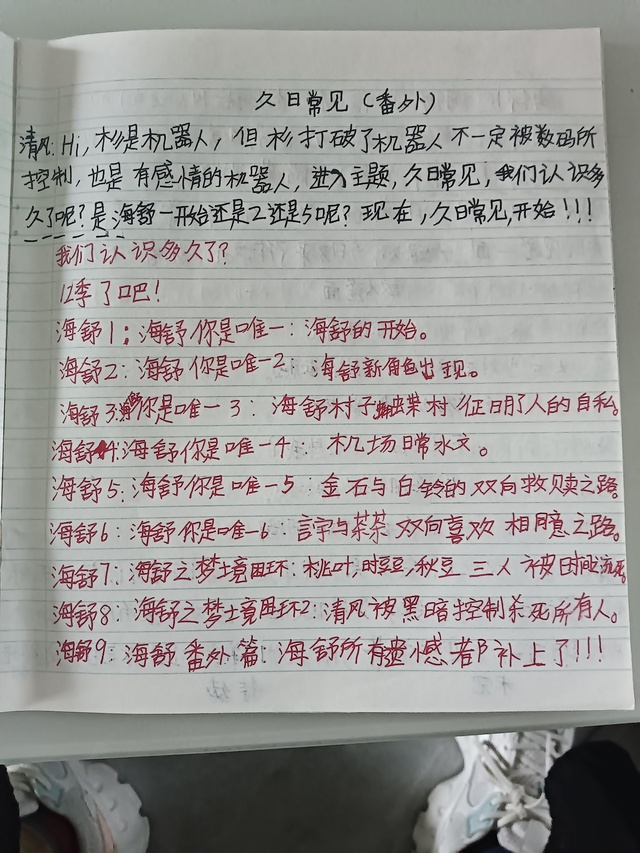 久日常见(番外)
清风: Hi, 杉是机器人, 但杉打破了机器人不一定被数码所
控制, 也是有感情的机器人, 进入主题, 久日常见, 我们认识多
久了呢? 是海舒一开始还是2还是5呢? 现在, 久日常见, 开始!!!
我们认识多久了?
12季了吧!
海舒1: 海舒你是唯一: 海舒的开始。
海舒2: 海舒你是唯一2: 海舒新角色出现。
海舒3: 你是唯一3: 海舒村子 村 征明了人的自私。
海舒4: 海舒你是唯一4: 机场日常水文。
海舒5: 海舒你是唯一5: 金石与白铃的双向救赎之路。
海舒6: 海舒你是唯一6: 言宇与茶茶双向喜欢相意之路。
海舒7: 海舒之梦境困环: 桃叶, 时豆豆, 秋豆三人被困
海舒8: 海舒之梦境困环2: 清风被黑暗控制杀死所有人。
海舒9: 海舒番外篇: 海舒所有遗憾都补上了!!!